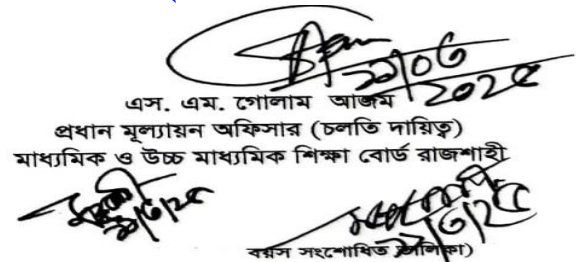 ১৯/০৩
২০২৫
এস. এম. গোলাম আজম
প্রধান মূল্যায়ন অফিসার (চলতি দায়িত্ব)
মাধ্যমিক ও উচ্চ মাধ্যমিক শিক্ষা বোর্ড রাজশাহী
১৯/৩/২৫
১৯/৩/২৫
বয়স সংশোধিত তালিকা)